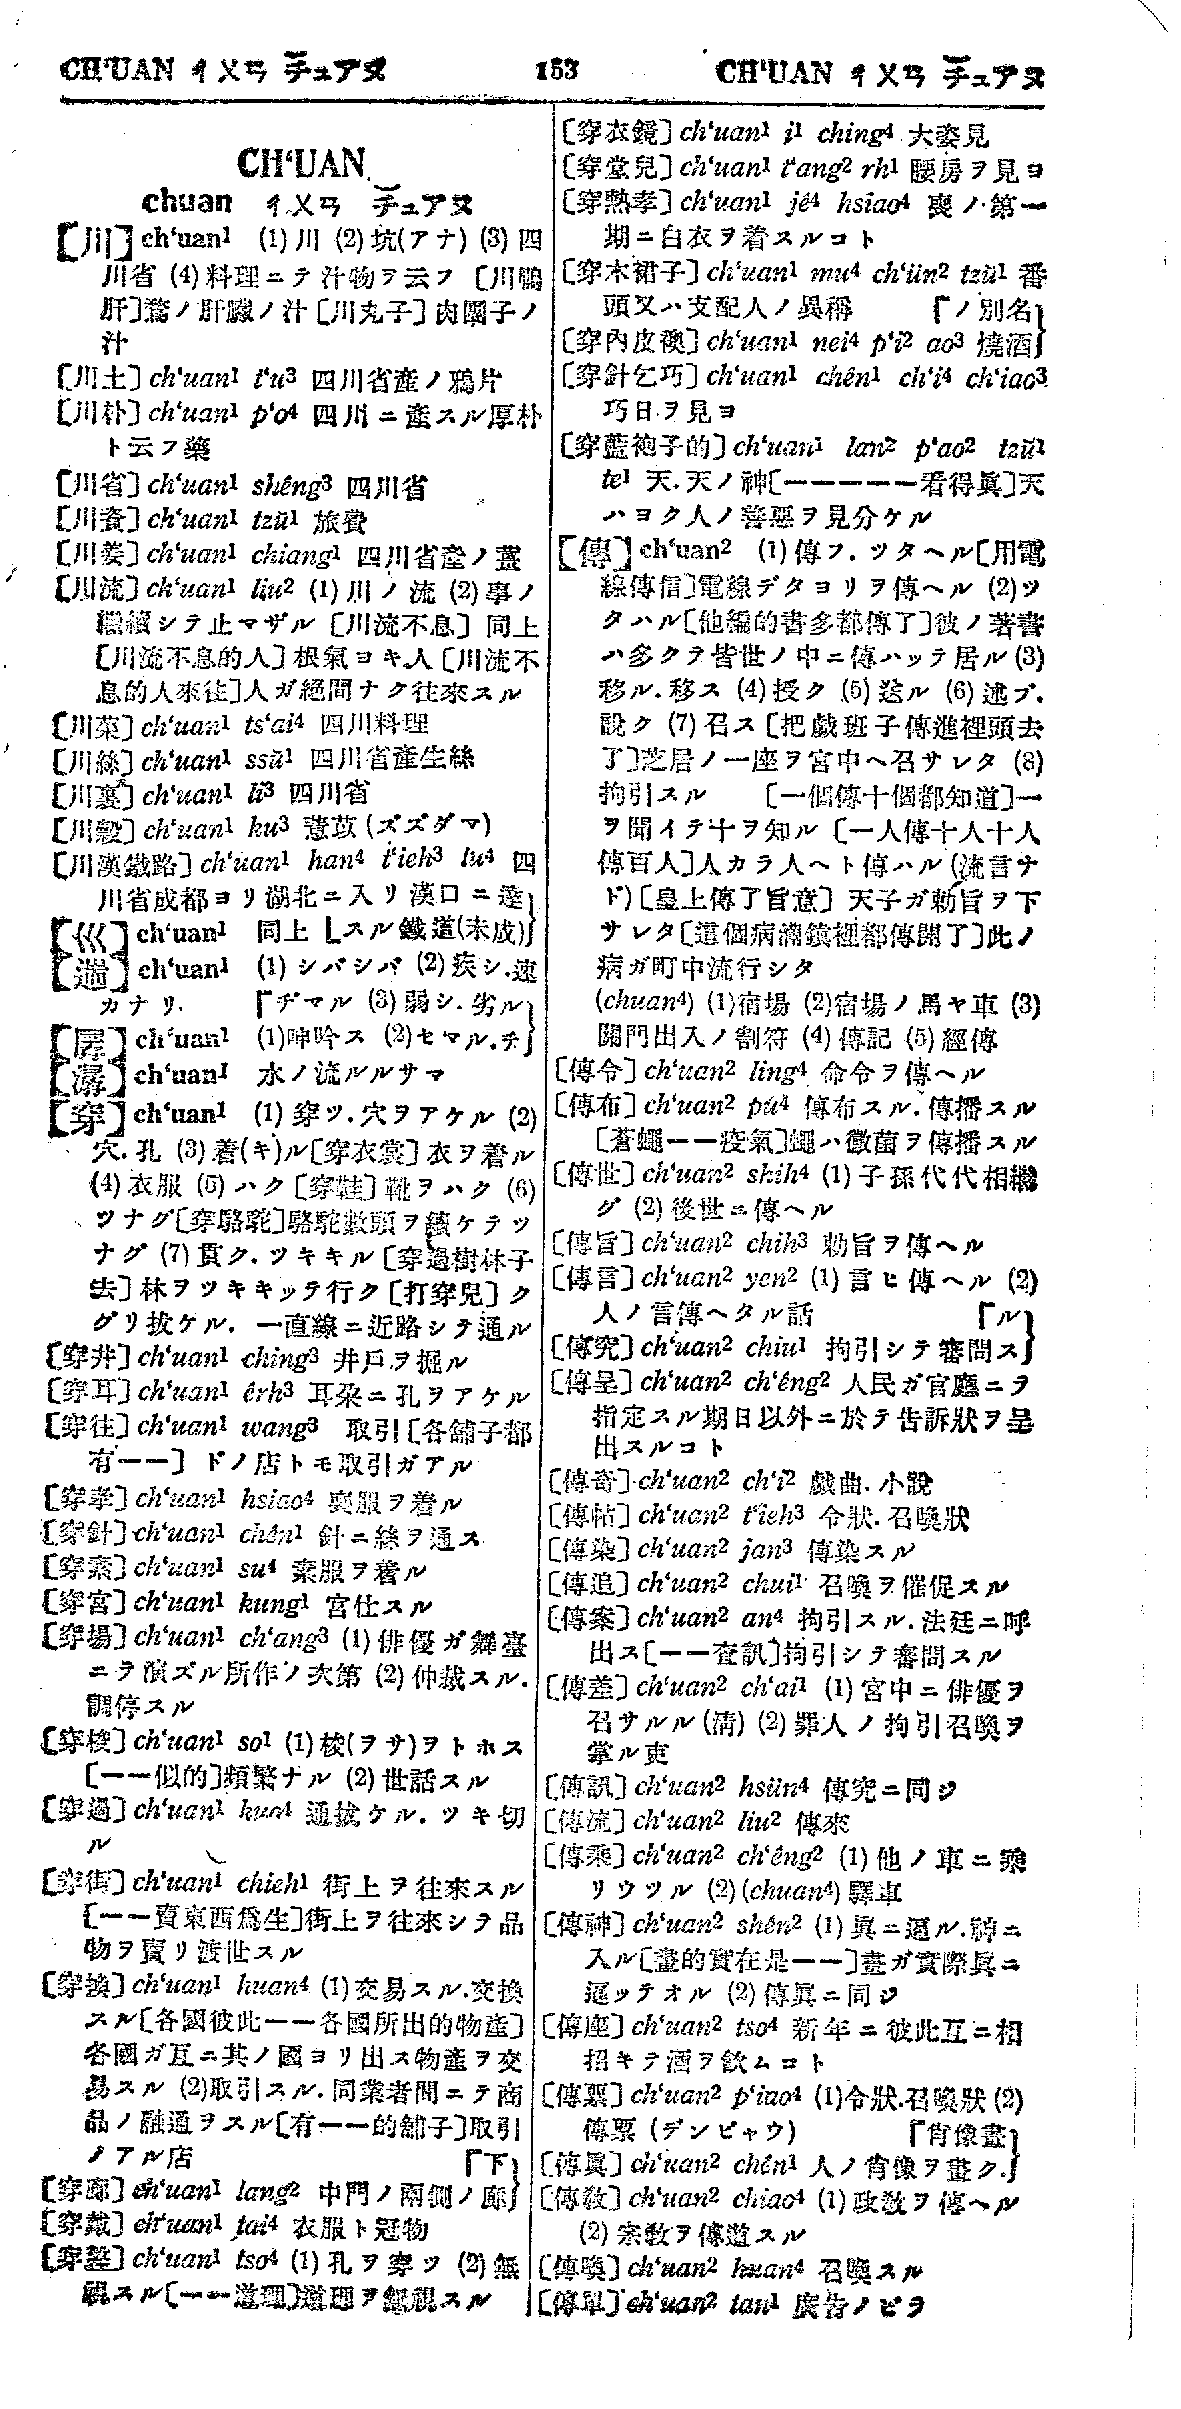 CH'UAN ㄔㄨㄢ チュアヌ 153 CH'UAN ㄔㄨㄢ チュアヌ
CH'UAN
chuan ㄔㄨㄢ チュアヌ
[川] ch'uan¹ (1)川 (2)坑(アナ) (3)四
川省 (4)料理ニテ汁物ヲ云フ [川鴨
肝]鴨ノ肝臓ノ汁[川丸子]肉團子ノ
汁
[川土] ch'uan¹ t'u³ 四川省產ノ鴉片
[川朴] ch'uan¹ p'o⁴ 四川ニ產スル厚朴
ト云フ藥
[川省] ch'uan¹ shêng³ 四川省
[川資] ch'uan¹ tzŭ¹ 旅費
[川姜] ch'uan¹ chiang¹ 四川省產ノ薑
[川流] ch'uan¹ liu² (1)川ノ流 (2)事ノ
繼續シテ止マザル [川流不息] 同上
[川流不息的人]根氣ヨキ人[川流不
息的人來往]人ガ絕間ナク往來スル
[川菜] ch'uan¹ ts'ai⁴ 四川料理
[川絲] ch'uan¹ ssŭ¹ 四川省產生絲
[川裏] ch'uan¹ li³ 四川省
[川穀] ch'uan¹ ku³ 薏苡(ズズダマ)
[川漢鐵路] ch'uan¹ han⁴ t'ieh³ lu⁴ 四
川省成都ヨリ湖北ニ入リ漢口ニ達
[巛] ch'uan¹ 同上 [スル鐵道(未成)
[遄] ch'uan¹ (1)シバシバ (2)疾シ.速
カナリ. 「ヂマル (3)弱シ.劣ル
[孱] ch'uan¹ (1)呻吟ス (2)セマル.チ
[潺] ch'uan¹ 水ノ流ルルサマ
[穿] ch'uan¹ (1)穿ツ.穴ヲアケル (2)
穴.孔 (3)着(キ)ル[穿衣裳]衣ヲ着ル
(4)衣服 (5)ハク[穿鞋]靴ヲハク (6)
ツナグ[穿駱駝]駱駝數頭ヲ續ケテツ
ナグ (7)貫ク.ツキキル[穿過樹林子
去]林ヲツキキッテ行ク[打穿兒]ク
グリ拔ケル. 一直線ニ近路シテ通ル
[穿井] ch'uan¹ ching³ 井戶ヲ掘ル
[穿耳] ch'uan¹ êrh³ 耳朶ニ孔ヲアケル
[穿往] ch'uan¹ wang³ 取引[各舖子都
有一一] ドノ店トモ取引ガアル
[穿孝] ch'uan¹ hsiao⁴ 喪服ヲ着ル
[穿針] ch'uan¹ chên¹ 針ニ絲ヲ通ス
[穿素] ch'uan¹ su⁴ 素服ヲ着ル
[穿宮] ch'uan¹ kung¹ 宮仕スル
[穿場] ch'uan¹ ch'ang³ (1)俳優ガ舞臺
ニテ演ズル所作ノ次第 (2)仲裁スル.
調停スル
[穿梭] ch'uan¹ so¹ (1)梭(ヲサ)ヲトホス
[一一似的]頻繁ナル (2)世話スル
[穿過] ch'uan¹ kuo⁴ 通拔ケル.ツキ切
ル
[穿街] ch'uan¹ chieh¹ 街上ヲ往來スル
[一一賣東西爲生]街上ヲ往來シテ品
物ヲ賣リ渡世スル
[穿換] ch'uan¹ huan⁴ (1)交易スル.交換
スル[各國彼此一一各國所出的物產]
各國ガ互ニ其ノ國ヨリ出ス物產ヲ交
易スル (2)取引スル.同業者間ニテ商
品ノ融通ヲスル[有一一的舖子]取引
ノアル店 「下
[穿廊] ch'uan¹ lang² 中門ノ兩側ノ廊
[穿戴] ch'uan¹ tai⁴ 衣服ト冠物
[穿鑿] ch'uan¹ tso⁴ (1)孔ヲ穿ツ (2)無
視スル[一一道理]道理ヲ無視スル
[穿衣鏡] ch'uan¹ i¹ ching⁴ 大姿見
[穿堂兒] ch'uan¹ t'ang² rh¹ 腰房ヲ見ヨ
[穿熱孝] ch'uan¹ jê⁴ hsiao⁴ 喪ノ第一
期ニ白衣ヲ着スルコト
[穿木裙子] ch'uan¹ mu⁴ ch'ün² tzŭ¹ 番
頭又ハ支配人ノ異稱 「ノ別名
[穿內皮襖] ch'uan¹ nei⁴ p'i² ao³ 燒酒
[穿針乞巧] ch'uan¹ chên¹ ch'i⁴ ch'iao³
巧日ヲ見ヨ
[穿藍袍子的] ch'uan¹ lan² p'ao² tzŭ¹
te¹ 天.天ノ神[一一一一一看得眞]天
ハヨク人ノ善惡ヲ見分ケル
[傳] ch'uan² (1)傳フ.ツタヘル[用電
線傳信]電線デタヨリヲ傳ヘル (2)ツ
タハル[他編的書多都傳了]彼ノ著書
ハ多クテ皆世ノ中ニ傳ハッテ居ル (3)
移ル.移ス (4)授ク (5)送ル (6)述ブ.
說ク (7)召ス[把戲班子傳進裡頭去
了]芝居ノ一座ヲ宮中ヘ召サレタ (8)
拘引スル [一個傳十個都知道]一
ヲ聞イテ十ヲ知ル [一人傳十人十人
傳百人]人カラ人ヘト傳ハル(流言ナ
ド)[皇上傳了旨意] 天子ガ勅旨ヲ下
サレタ[這個病滿鎮裡都傳開了]此ノ
病ガ町中流行シタ
(chuan⁴) (1)宿場 (2)宿場ノ馬ヤ車 (3)
關門出入ノ割符 (4)傳記 (5)經傳
[傳令] ch'uan² ling⁴ 命令ヲ傳ヘル
[傳布] ch'uan² pu⁴ 傳布スル.傳播スル
[蒼蠅一一疫氣]蠅ハ黴菌ヲ傳播スル
[傳世] ch'uan² shih⁴ (1)子孫代代相繼
グ (2)後世ニ傳ヘル
[傳旨] ch'uan² chih³ 勅旨ヲ傳ヘル
[傳言] ch'uan² yen² (1)言ヒ傳ヘル (2)
人ノ言傳ヘタル話 「ル
[傳究] ch'uan² chiu¹ 拘引シテ審問ス
[傳呈] ch'uan² ch'êng² 人民ガ官廳ニヲ
指定スル期日以外ニ於テ告訴狀ヲ呈
出スルコト
[傳奇] ch'uan² ch'i² 戲曲.小說
[傳帖] ch'uan² t'ieh³ 令狀.召喚狀
[傳染] ch'uan² jan³ 傳染スル
[傳追] ch'uan² chui¹ 召喚ヲ催促スル
[傳案] ch'uan² an⁴ 拘引スル.法廷ニ呼
出ス[一一査訊]拘引シテ審問スル
[傳差] ch'uan² ch'ai¹ (1)宮中ニ俳優ヲ
召サルル(淸) (2)罪人ノ拘引召喚ヲ
掌ル吏
[傳訊] ch'uan² hsün⁴ 傳究ニ同ジ
[傳流] ch'uan² liu² 傳來
[傳乘] ch'uan² ch'êng² (1)他ノ車ニ乘
リウツル (2)(chuan⁴)驛車
[傳神] ch'uan² shên² (1)眞ニ逼ル.神ニ
入ル[畫的實在是一一]畫ガ實際眞ニ
逼ッテオル (2)傳眞ニ同ジ
[傳座] ch'uan² tso⁴ 新年ニ彼此互ニ相
招キテ酒ヲ飮ムコト
[傳票] ch'uan² p'iao⁴ (1)令狀.召喚狀 (2)
傳票 (デンピャウ) 「肖像畫
[傳眞] ch'uan² chên¹ 人ノ肖像ヲ畫ク.
[傳敎] ch'uan² chiao⁴ (1)政敎ヲ傳ヘル
(2)宗敎ヲ傳道スル
[傳喚] ch'uan² huan⁴ 召喚スル
[傳單] ch'uan² tan¹ 廣告ノビラ